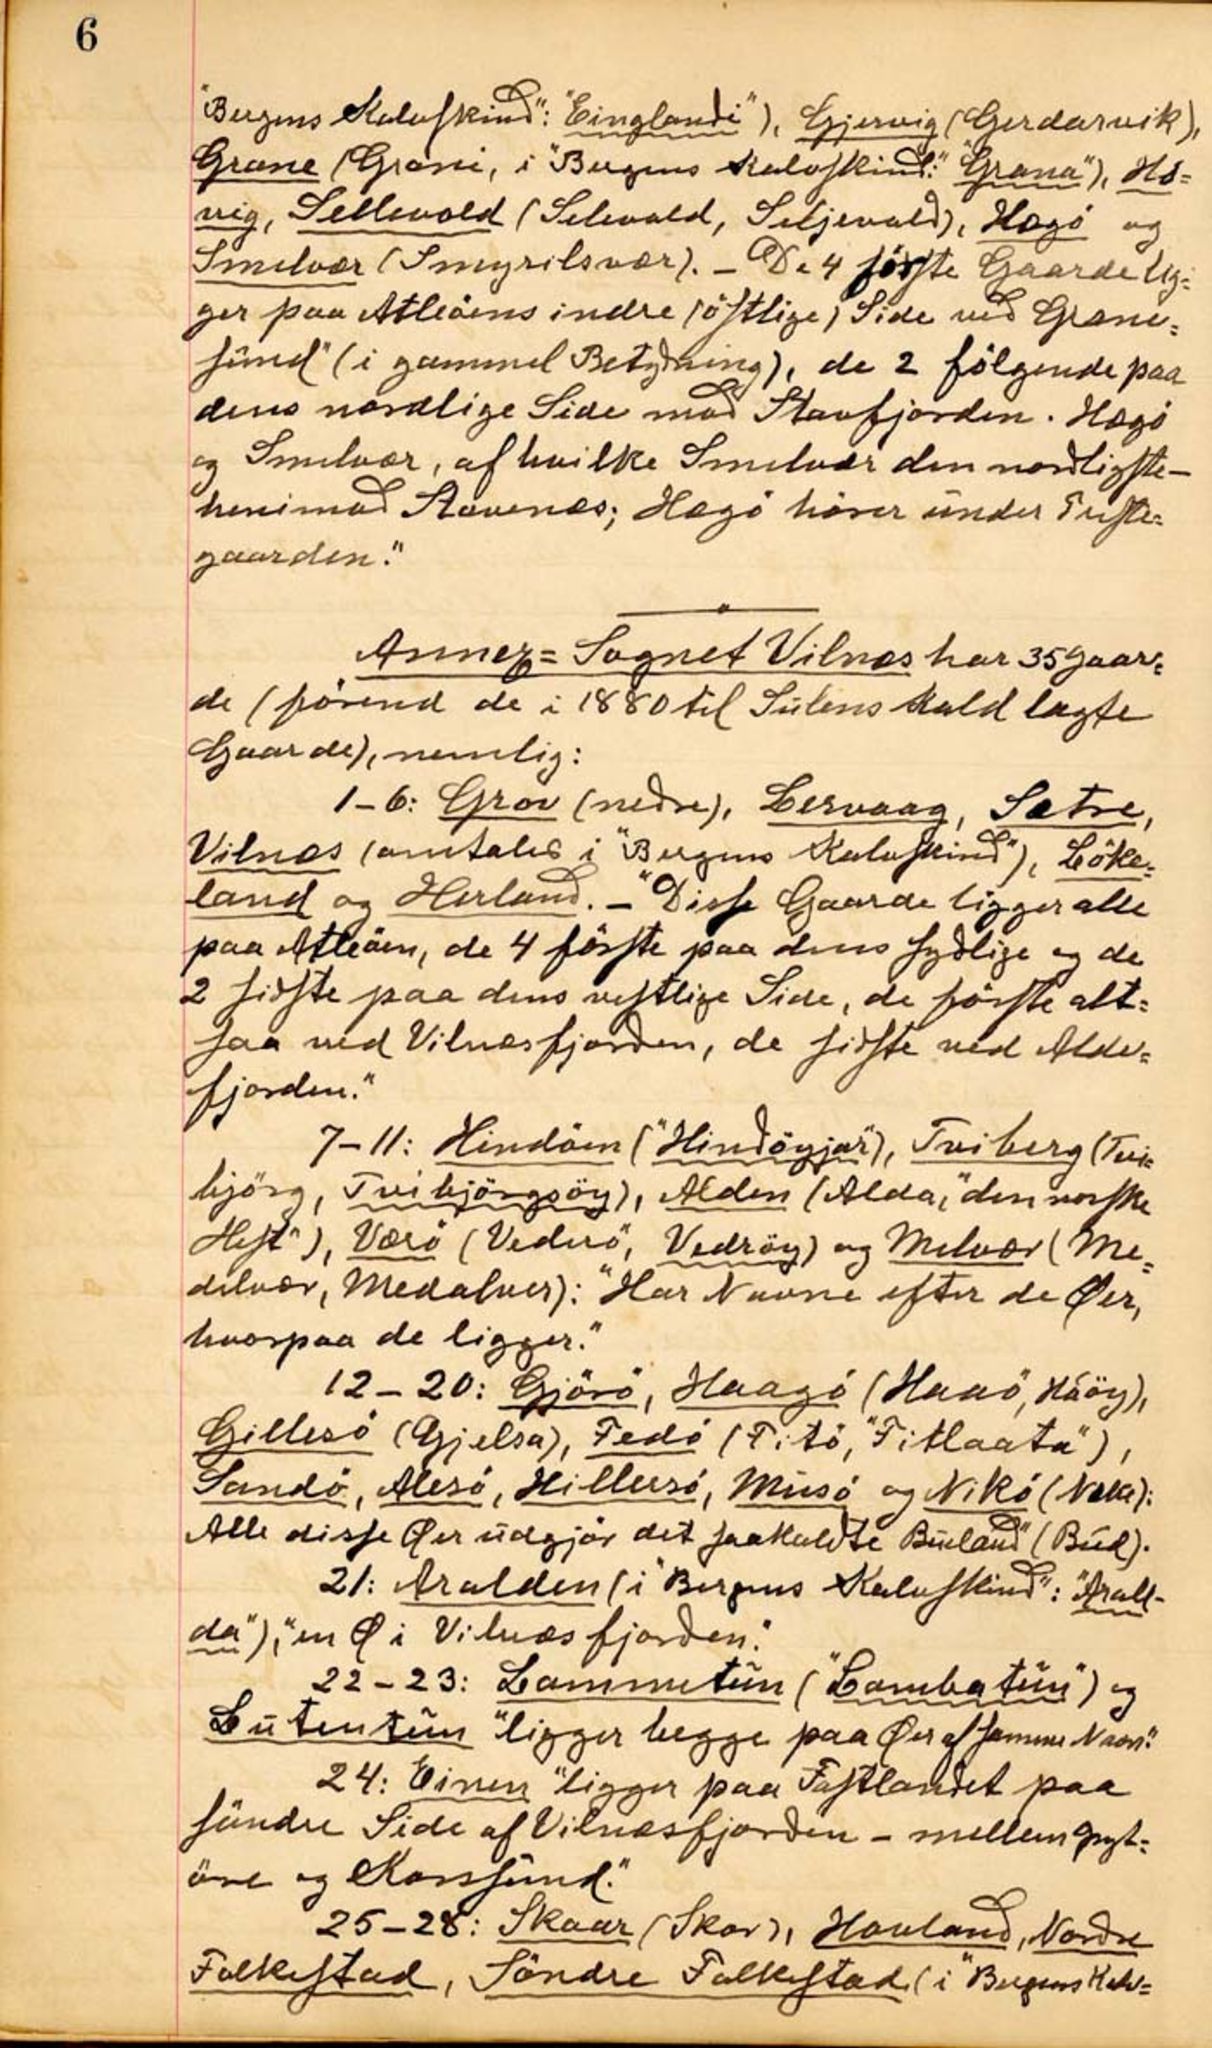 6
"Bergens Kalvskind": "Einglandi"), Gjervig (Gerdarvik),
Grane (Grani, i "Bergens Kalvskind": "Grana"), Hå=
vig, Sellevold (Selevald, Seljevald), Hægö og
Smelvær (Smyrilsvær). – "De 4 förste Gaarde lig=
ger paa Atleöens indre (östlige) Side ved Grane=
sund" (i gammel Betydning), de 2 fölgende paa
dens nordlige Side mod Stavfjorden. Hægö
og Smelvær, af hvilke Smelvær den nordligste –
henimod Stavenes; Hægö hörer under Præste=
gaarden."
Annex=Sognet Vilnæs har 35 Gaar=
de (förend de i 1880 til Sulens Kald lagte
Gaarde), nemlig:
1–6: Grov (nedre), Lervaag, Sætre,
Vilnæs (omtales i "Bergens Kalvskind"), Löke=
land og Herland. – "Disse Gaarde ligger alle
paa Atleöen, de 4 förste paa dens sydlige og de
2 sidste paa dens vestlige Side, de förste alt=
saa ved Vilnæsfjorden, de sidste ved Alde=
fjorden."
7–11: Hindöen ("Hindöyjar"), Tviberg (Tvi=
björg, Tvibjörgsöy), Alden (Alda, "den norske
Hest"), Værö (Vederö, Vedröy) og Melvær (Me=
delvær, Medalver): "Har Navne efter de Øer,
hvorpaa de ligger."
12–20: Gjörö, Haagö (Haaö, Háöy),
Gillesö (Gjelsa), Fedö (Fitö, "Fitlaata"),
Sandö, Alesö, Hillersö, Musö og Nikö (Neka):
Alle disse Øer udgjör det saakaldte "Bueland" (Bud).
21: Aralden (i "Bergens Kalvskind": "Arall-
da"), "en Ø i Vilnæsfjorden."
22–23: Lammetun ("Lambatún") og
Lutentun "ligger begge paa Øer af samme Navn."
24: Einen "ligger paa Fastlandet paa
söndre Side af Vilnæsfjorden – mellem Gryt=
öre og Korssund."
25–28: Skaar (Skor), Hovland, Nordre
Folkestad, Söndre Folkestad (i "Bergens Kalv=